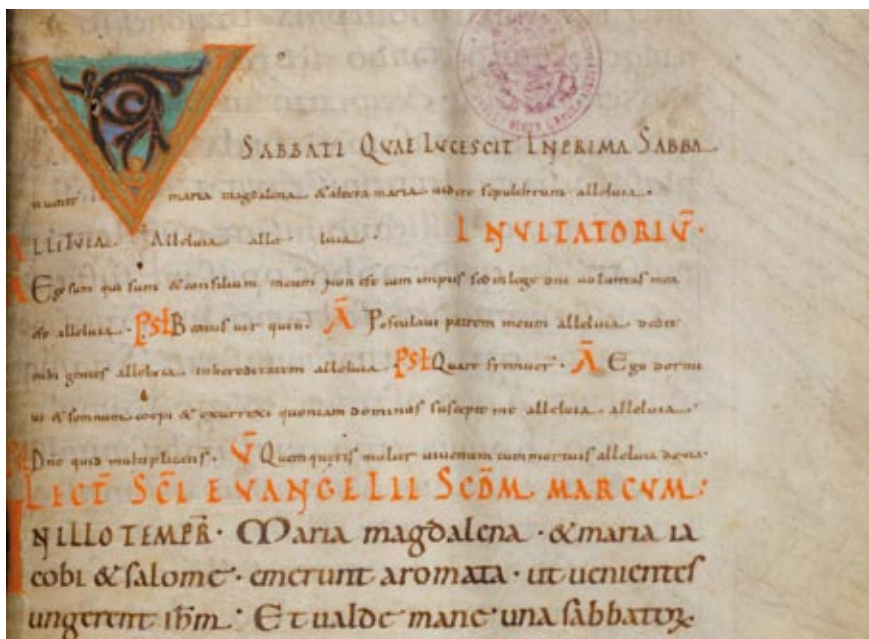 VESPERE SABBATI QUAE LUCESCIT IN PRIMA SABBA
uenit maria magdalena & altera maria uidere sepulchrum alleluia.
ALLELUIA Alleluia alleluia. INUITATORIŪ.
A Ego sum qui sum & consilium meum non est cum impiis sed in lege dni uoluntas mea
est alleluia. Psł Beatus uir qui n̄ Ā Postulaui patrem meum alleluia dedit
mihi gentes alleluia in hereditatem alleluia. Psł Quare fremuer̄. Ā Ego dormi
ui & somnum coepi & exurrexi quoniam dominus suscepit me alleluia. alleluia.
Psł Dn̄e quid multiplicati s̄. V̄ Quem queris mulier uiuentem cum mortuis alleluia
LECT̄ SC̄I EVANGELII SCD̄M MARCVM:
INILLO TEMPR̄. Maria magdalena. & maria ia
cobi & salome. emerunt aromata. ut uenientes
ungerent ihm̄. Et ualde mane una sabbatoꝝ